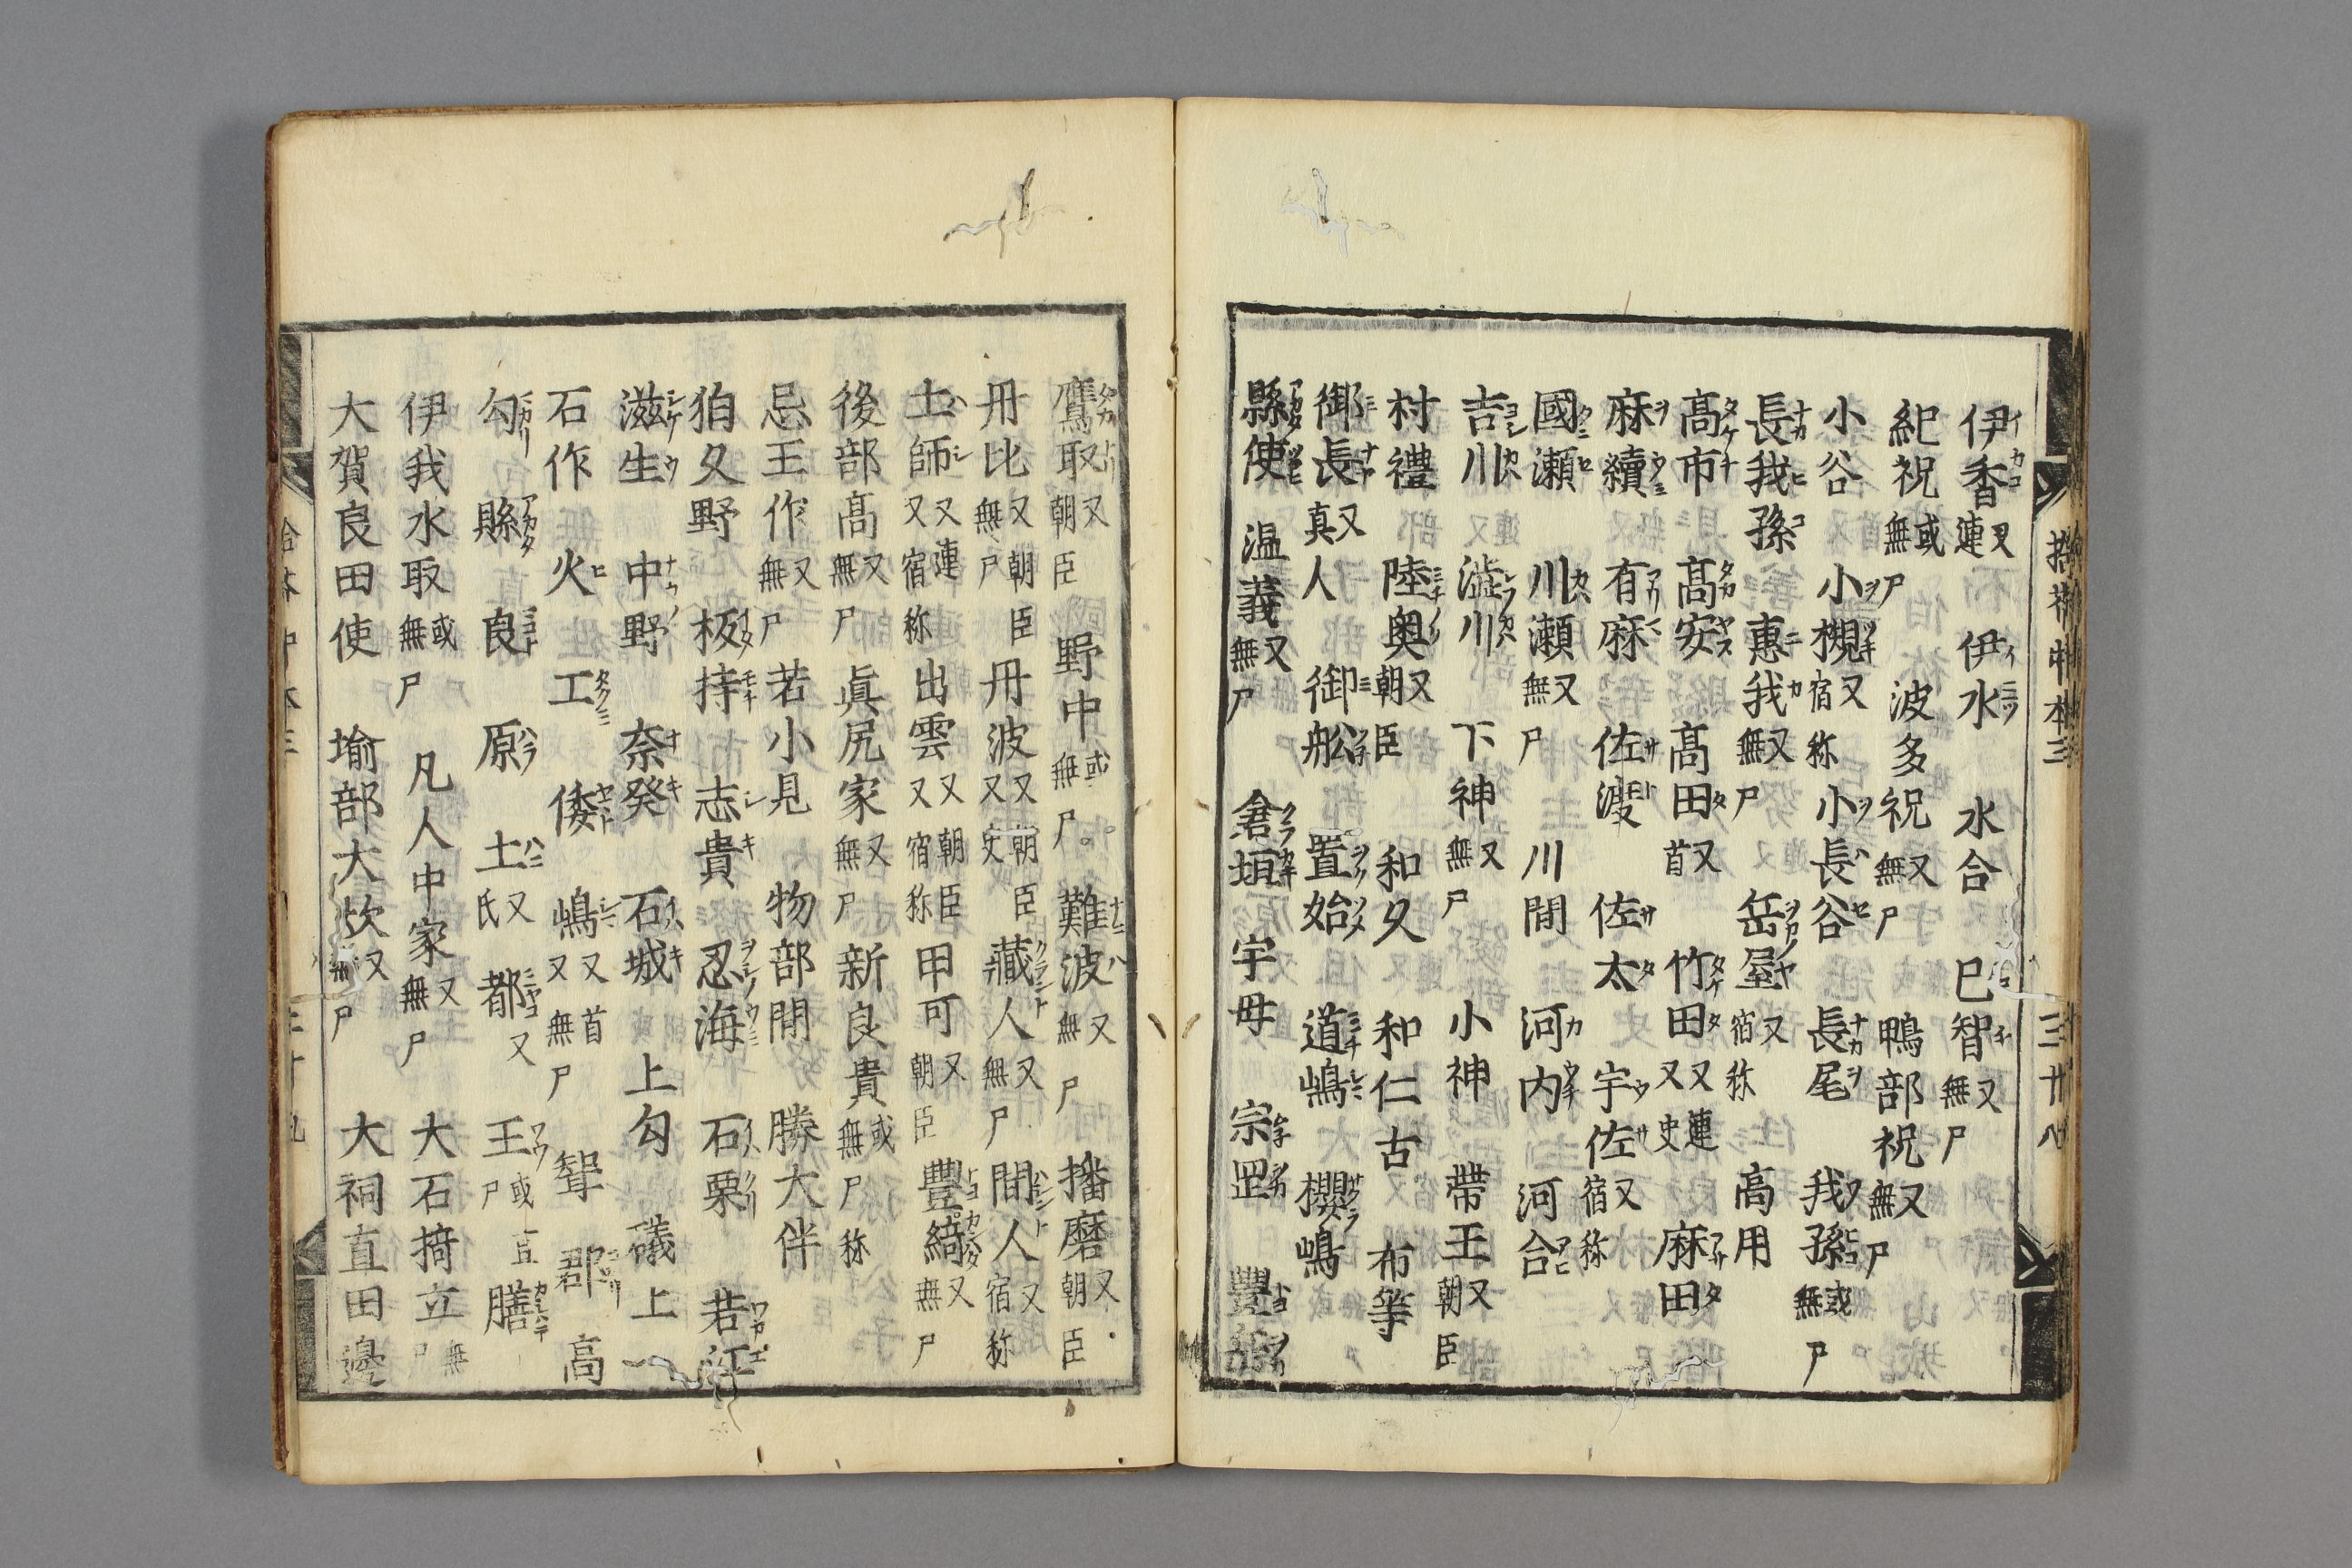 伊香又連 伊水 水合 巳智又無尸
紀祝或無尸 波多祝又無尸 鴨部祝又無尸
小谷 小槻又宿祢 小長谷 長尾 我孫或無尸
長我孫 惠我又無尸 岳屋又宿祢 高用
髙市 髙安 髙田又首 竹田又連又史 麻田
麻續 有麻 佐渡 佐太 宇佐又宿祢
國瀬 川瀬又無尸 川間 河内 河合
吉川 澁川 下神又無尸 小神 帶王又朝臣
村禮 陸奥又朝臣 和久 和仁古 布筆
御長又真人 御舩 置始 道嶋 櫻嶋
縣使 温義又無尸 倉垣 宇母 宗罡 豐
拾芥抄中本三 三十八
鷹取又朝臣 野中或無尸 難波又無尸 播磨又朝臣
丹比又朝臣無尸 丹波又朝臣又史 藏人又無尸 間人又宿祢
土師又連又宿祢 出雲又朝臣又宿祢 甲可又朝臣 豐綺又無尸
後部髙又無尸 眞尻家又無尸 新良貴或無尸祢
忌王作又無尸 若小見 物部間 勝大伴
狛久野 板持 志貴 忍海 石栗 若江
滋生 中野 奈癸 石城 上勾 礒上
石作 火 工 倭 嶋又首又無尸 聟 郡 高
勾 縣 良 原 土又氏 都又 王或直尸 膳
伊我水取或無尸 凡人中家又無尸 大石掎立無尸
大賀良田使 堬部大炊又無尸 大祠直田邊